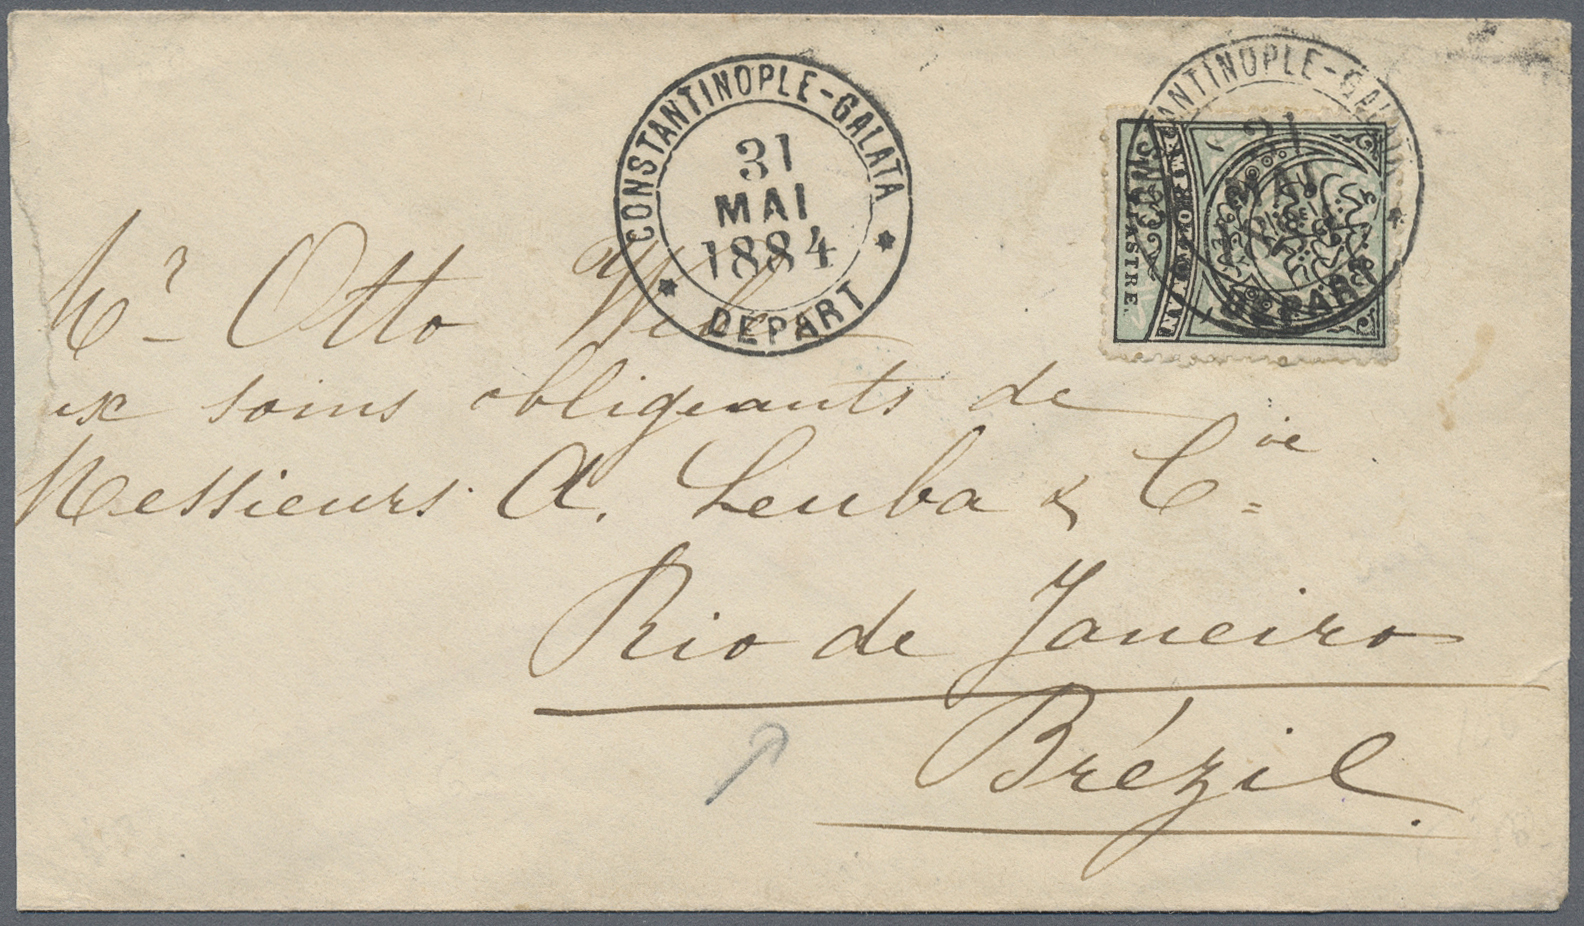 CONSTANTINOPLE-GALATA
31
MAI
1884
DEPART
CONSTANTINOPLE-GALATA
31
MAI
DEPART
PIASTRE.
Mr Otto
ux soins obligeants de
Messieurs A. Leuba & Cie
Rio de Janeiro
Brézil.